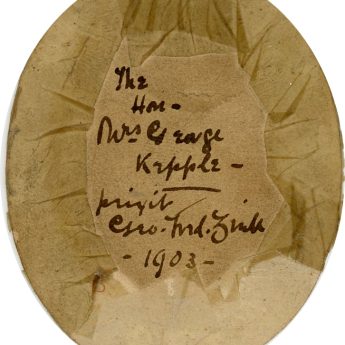 The
Hon -
Mrs George
Kepple -
pinxit
Geo. Frd. Zink
- 1903 -